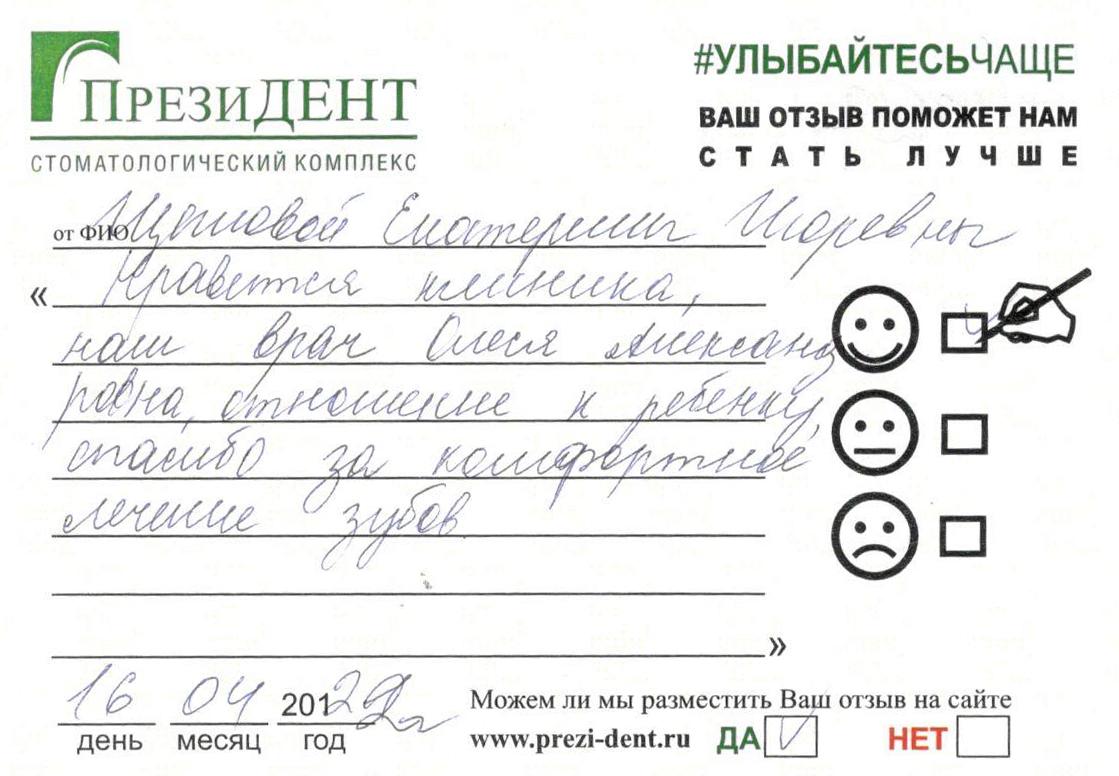 ПРЕЗИДЕНТ
СТОМАТОЛОГИЧЕСКИЙ КОМПЛЕКС
#УЛЫБАЙТЕСЬЧАЩЕ
ВАШ ОТЗЫВ ПОМОЖЕТ НАМ
СТАТЬ ЛУЧШЕ
от ФИО Екатерины Игоревны
« Нравится клиника,
наш врач Олеся Александ
ровна, отношение к ребенку,
спасибо за комфортное
лечение зубов
»
16 04 201
день месяц год
Можем ли мы разместить Ваш отзыв на сайте
www.prezi-dent.ru ДА НЕТ